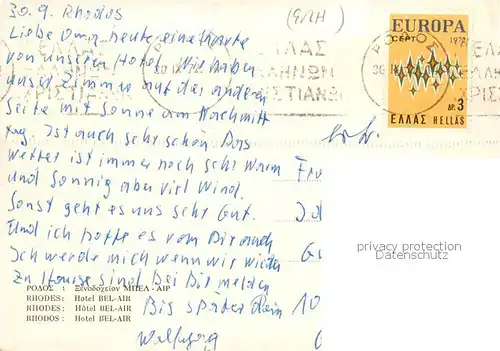 30.9. Rhodos
Liebe Oma, heute eine Karte
von unserem Hotel. Wir haben
unser Zimmer auf der anderen
Seite mit Sonne am Nachmit
tag. Ist auch sehr schön. Das
Wetter ist immer noch sehr warm
und sonnig aber viel Wind.
Sonst geht es uns sehr gut.
Und ich hoffe es von Dir auch
Ich werde mich wenn wir wieder
zu Hause sind bei Dir melden
Bis später Dein
Wolfgang
EUROPA
CEPT 1972
ΔΡ. 3
ΕΛΛΑΣ HELLAS
ΡΟΔΟ
30 IX 72
ΕΛΛΑΣ
ΕΛΛΗΝΩΝ
ΧΡΙΣΤΙΑΝΩ
privacy protection
Datenschutz
ΡΟΔΟΣ : Ξενοδοχεῖον ΜΠΕΛ-ΑΙΡ
RHODES: Hotel BEL-AIR
RHODES: Hôtel BEL-AIR
RHODOS: Hotel BEL-AIR